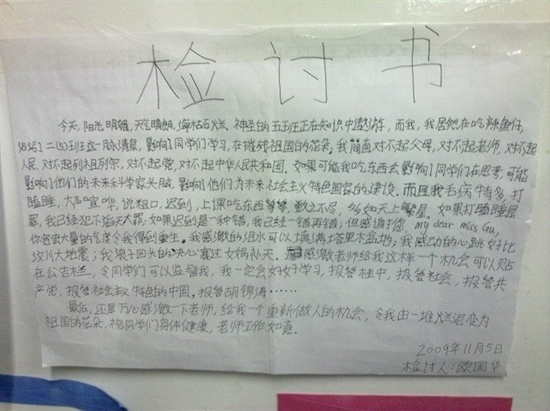 检讨书
今天,阳光明媚,天空晴朗,海枯石烂,神圣的五班正在知识中遨游,而我,我居然在吃辣鱼仔,
玷污了二(5)班这一脉清泉,影响了同学们学习,在摧残祖国的花朵,我简直对不起父母,对不起老师,对不起
人民,对不起列祖列宗,对不起党,对不起中华人民共和国.如果可能我吃东西会影响了同学们在思考,可能
影响了他们的未来科学家头脑,影响他们为未来社会主义特色国家的建设.而且我毛病特多,打
瞌睡,大声喧哗,说粗口,迟到,上课吃东西等等,数之不尽,多如天上繁星.如果打瞌睡是
罪,我已经犯下滔天大罪,如果迟到是一种错,我已经一错再错,但感谢您,my dear miss Gu,
你宽宏大量的气度令我得到重生.我感激的泪水可以填满塔里木盆地,我感动的心跳好比
汶川大地震;我浪子回头的决心赛过女娲补天.感激老师给我这样一个机会可以贴
在公告栏,令同学们可以监督我,我一定会好好学习,报答桂中,报答社会,报答共
产党,报答社会主义特色的中国,报答胡锦涛……
最后,还是万心感激一下老师,给我一个重新做人的机会,令我由一堆烂泥变为
祖国的花朵.祝同学们身体健康,老师工作如意.
2009年11月5日
检讨人:国华